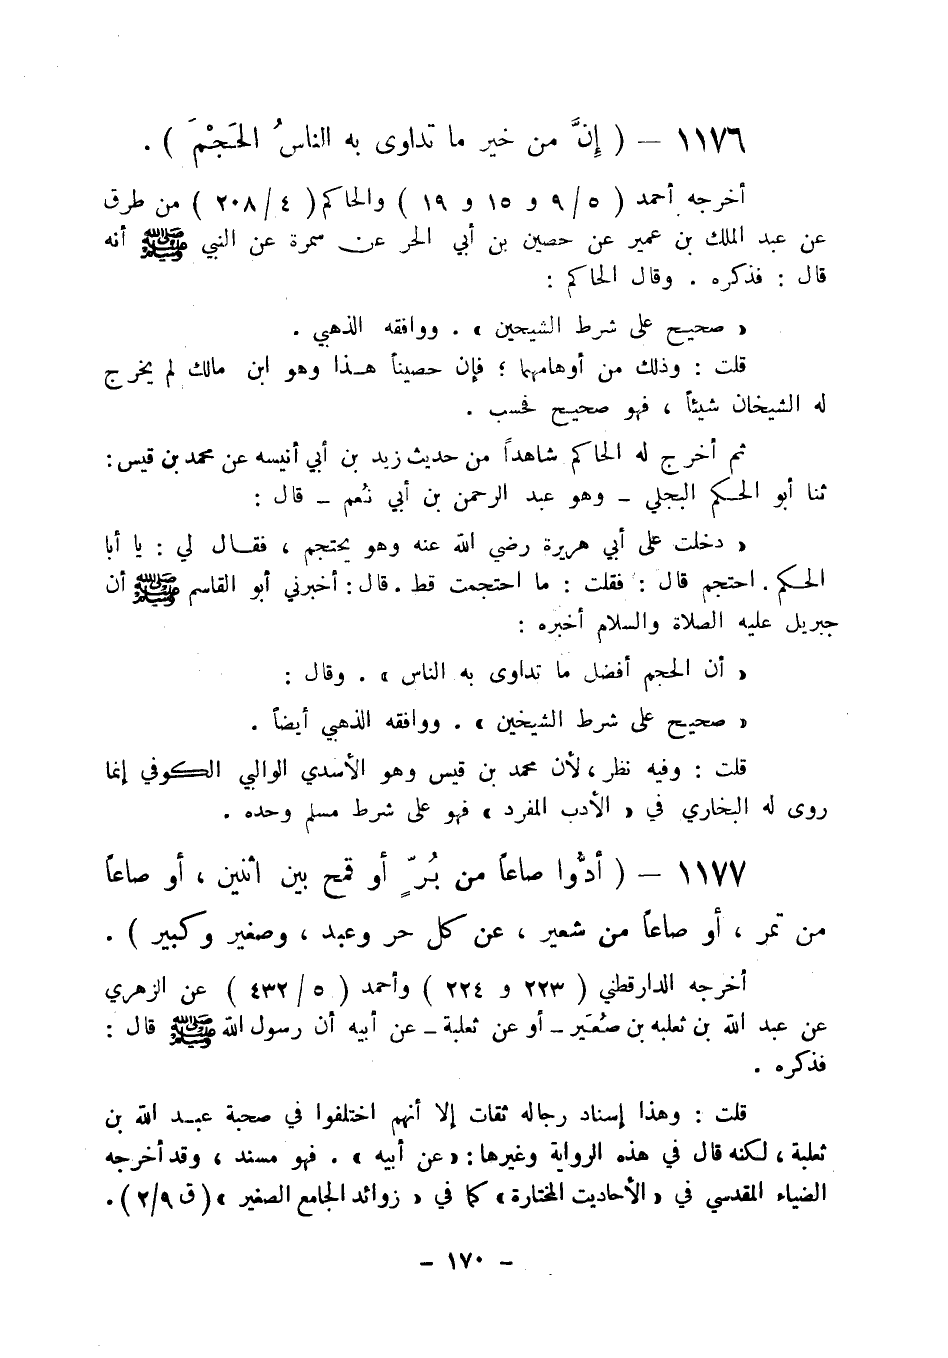 ١١٧٦ – ( إِنَّ من خير ما تداوى به الناسُ الحَجْمَ ) .
أخرجه أحمد ( ٥ / ٩ و ١٥ و ١٩ ) والحاكم ( ٤ / ٢٠٨ ) من طرق
عن عبد الملك بن عمير عن حصين بن أبي الحر عن سمرة عن النبي ﷺ أنه
قال : فذكره . وقال الحاكم :
« صحيح على شرط الشيخين » . ووافقه الذهبي .
قلت : وذلك من أوهامهما ؛ فإن حصيناً هـذا وهو ابن مالك لم يخرج
له الشيخان شيئاً ، فهو صحيح فحسب .
ثم أخرج له الحاكم شاهداً من حديث زيد بن أبي أنيسه عن محمد بن قيس :
ثنا أبو الحكم البجلي – وهو عبد الرحمن بن أبي نُعم – قال :
« دخلت على أبي هريرة رضي الله عنه وهو يحتجم ، فقال لي : يا أبا
الحكم . احتجم قال : فقلت : ما احتجمت قط . قال : أخبرني أبو القاسم ﷺ أن
جبريل عليه الصلاة والسلام أخبره :
« أن الحجم أفضل ما تداوى به الناس » . وقال :
« صحيح على شرط الشيخين » . ووافقه الذهبي أيضاً .
قلت : وفيه نظر ، لأن محمد بن قيس وهو الأسدي الوالبي الكوفي إنما
روى له البخاري في « الأدب المفرد » فهو على شرط مسلم وحده .
١١٧٧ – ( أدُّوا صاعاً من بُرّ ٍ أو قمح بين اثنين ، أو صاعاً
من تمر ، أو صاعاً من شعير ، عن كل حر وعبد ، وصغير وكبير ) .
أخرجه الدارقطني ( ٢٢٣ و ٢٢٤ ) وأحمد ( ٥ / ٤٣٢ ) عن الزهري
عن عبد الله بن ثعلبه بن صُعَير – أو عن ثعلبة – عن أبيه أن رسول الله ﷺ قال :
فذكره .
قلت : وهذا إسناد رجاله ثقات إلا أنهم اختلفوا في صحبة عبـد الله بن
ثعلبة ، لكنه قال في هذه الرواية وغيرها : « عن أبيه » . فهو مسند ، وقد أخرجه
الضياء المقدسي في « الأحاديث المختارة » كما في « زوائد الجامع الصغير » ( ق ٢/٩ ) .
– ١٧٠ –